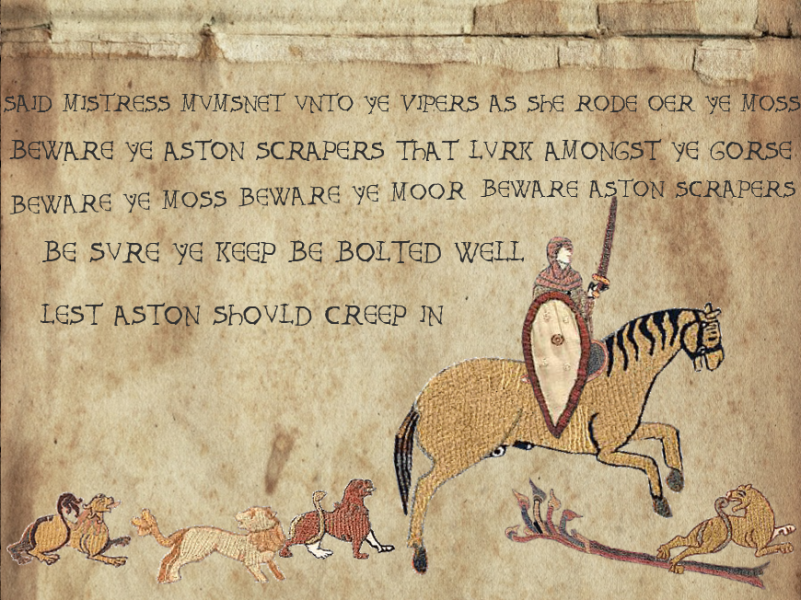 SAID MISTRESS MVMSNET VNTO YE VIPERS AS SHE RODE OER YE MOSS
BEWARE YE ASTON SCRAPERS THAT LVRK AMONGST YE GORSE
BEWARE YE MOSS BEWARE YE MOOR BEWARE ASTON SCRAPERS
BE SVRE YE KEEP BE BOLTED WELL
LEST ASTON SHOVLD CREEP IN